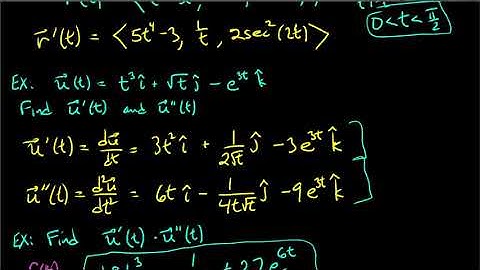 r⃗'(t) = ⟨5t⁴-3, 1/t, 2sec²(2t)⟩
0<t<π/2
Ex: u⃗(t) = t³î + √t ĵ - e³ᵗ k̂
Find u⃗'(t) and u⃗''(t)
u⃗'(t) = du⃗/dt = 3t² î + 1/(2√t) ĵ - 3e³ᵗ k̂
u⃗''(t) = d²u⃗/dt² = 6t î - 1/(4t√t) ĵ - 9e³ᵗ k̂
Ex: Find u⃗'(t) · u⃗''(t)